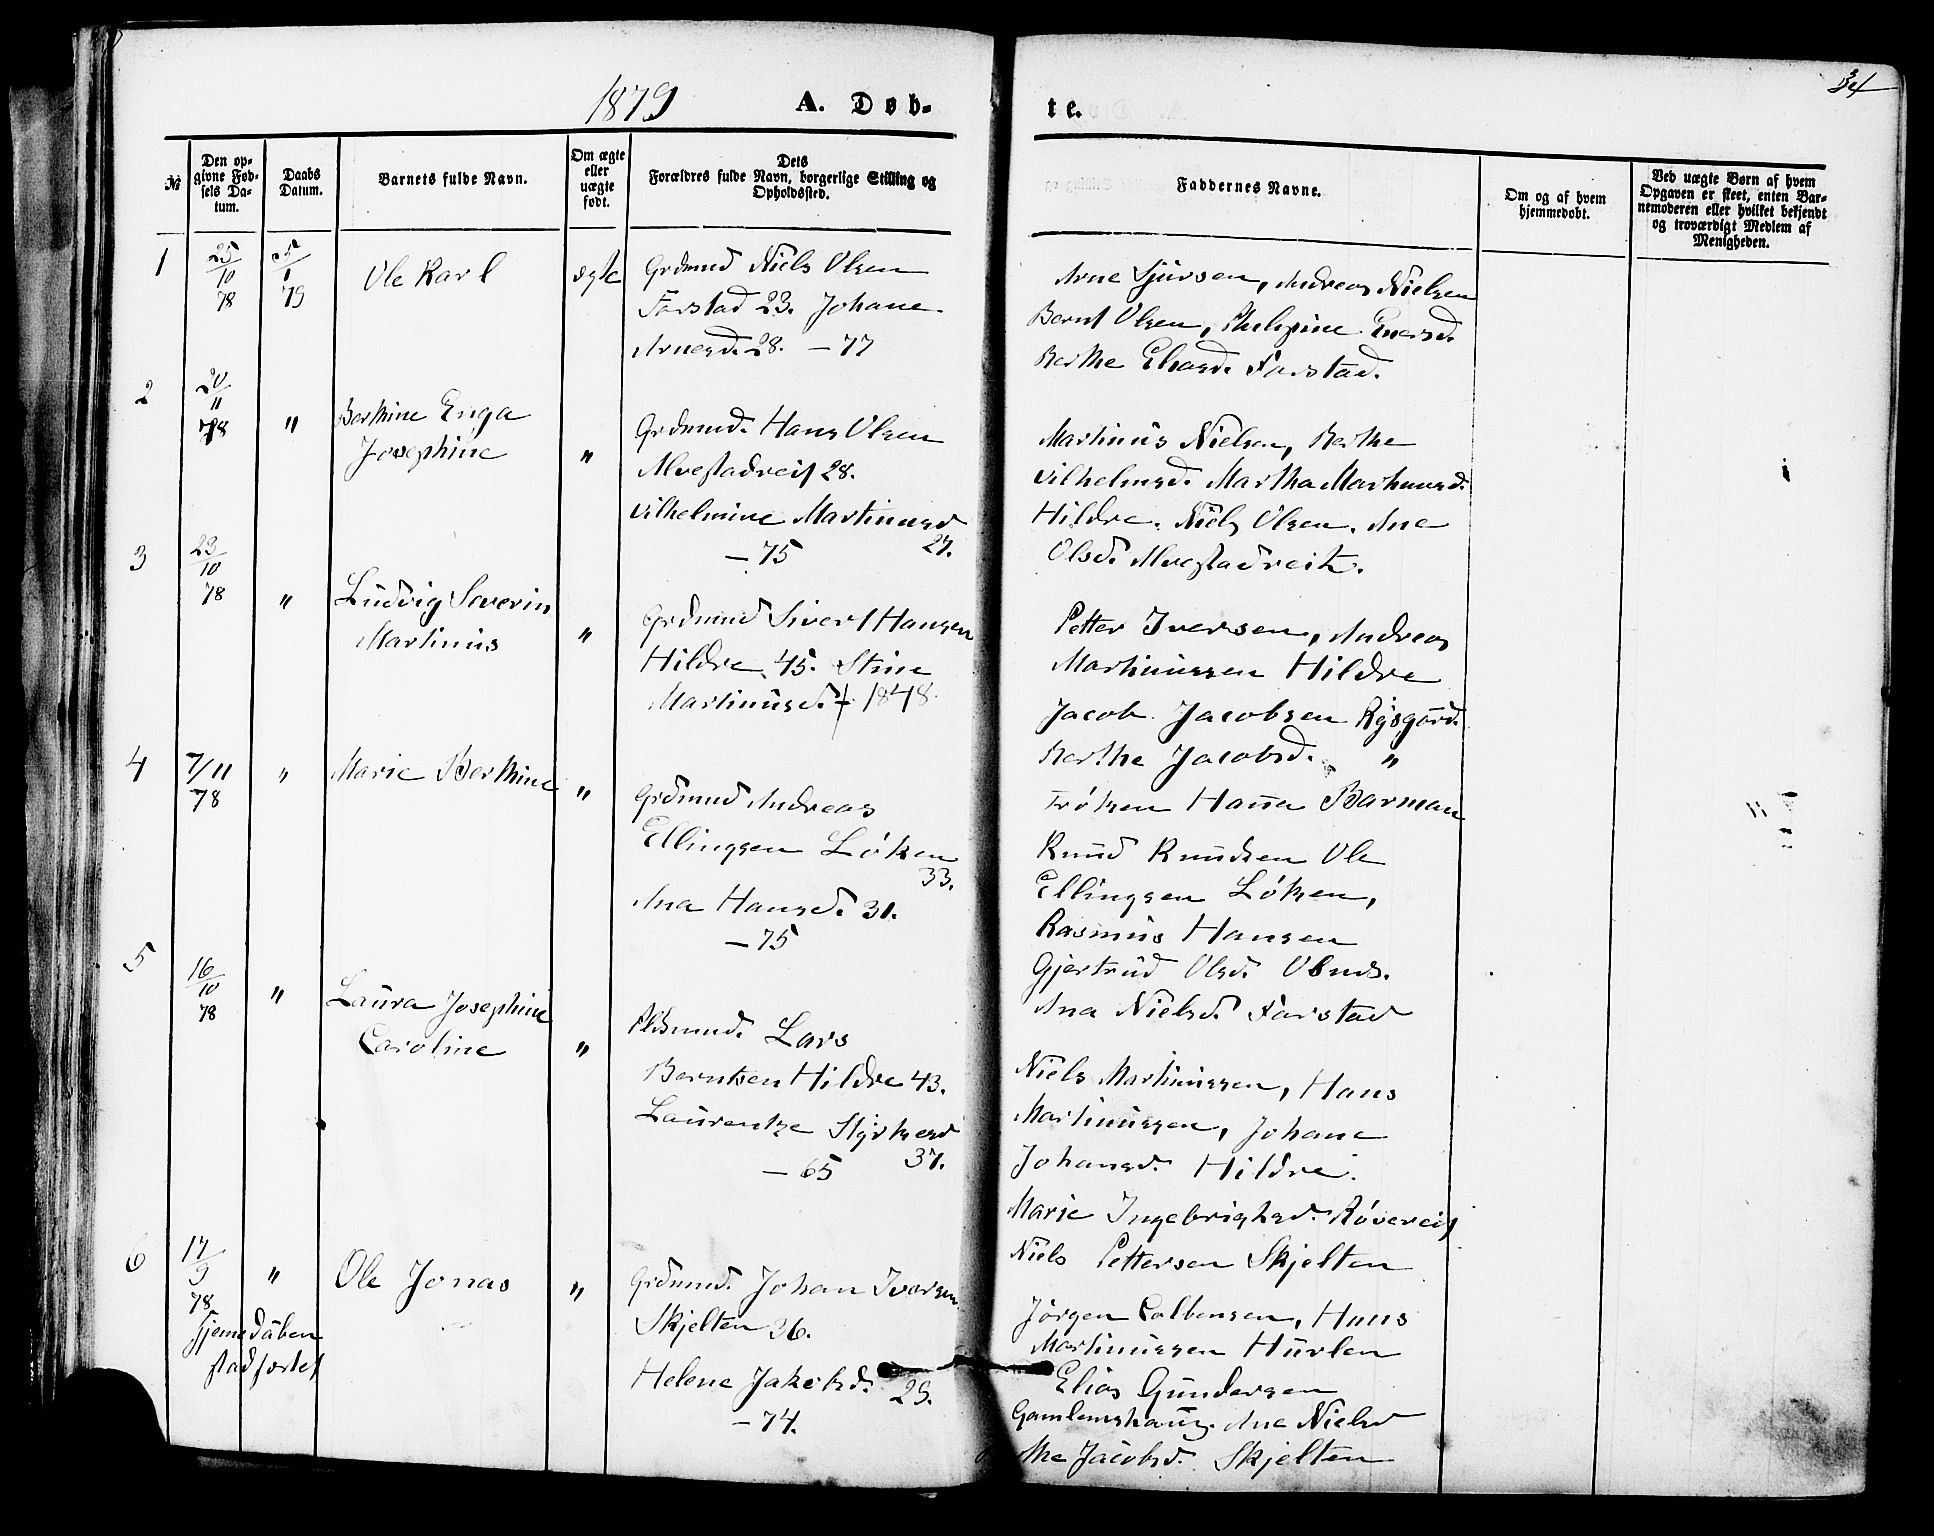 1879 A. Døb-
te.
34
№
Den op-
givne Fød-
sels Da-
tum.
Daabs
Datum.
Barnets fulde Navn.
Om ægte
eller
uægte
født.
Dets
Forældres fulde Navn, borgerlige Stilling og
Opholdssted.
Faddernes Navne.
Om og af hvem
hjemmedøbt.
Ved uægte Børn af hvem
Opgaven er skeet, enten Bar-
nemoderen eller hvilket bekjendt
og troværdigt Medlem af
Menigheden.
1
25/10 78
5/1 79
Ole Karl
ægte
Grdmnd Niels Olsen
Farstad 23. Johane
Arnesd. 28. – 77
Arne Sjursen, Andreas Nielsen
Bernt Olsen,
Berthe Eliasd. Farstad.
2
20/11 78
"
Berthine Enga
Josephine
"
Grdmnd. Hans Olsen
Alvestadreit 28.
Vilhelmine Martinusd
27.
– 75
Martinus Nielsen, Berthe
Vilhelmsd. Martha Martinusd.
Hildre. Niels Olsen. Ane
Olsd. Alvestadreit.
3
23/10 78
"
Ludvig Severin
Martinus
"
Grdmnd Sivert Hansen
Hildre 45. Stine
Martinusd. 1848.
Petter Iversen, Andreas
Martinussen Hildre
Jacob Jacobsen Rysgård.
Berthe Jacobsd. "
Frøken Hanna Barman
4
7/11 78
"
Marie Berthine
"
Grdmnd Andreas
Ellingsen Løken
33.
Ana Hansd. 31.
– 75
Knud Knudsen Ole
Ellingsen Løken,
Rasmus Hansen
Gjertrud Olsd.
Ana Nielsd. Farstad
5
16/10 78
"
Laura Josephine
Caroline
"
Pldsmnd. Lars
Berntsen Hildre 43.
Laurentze Styrkesd
37.
– 65
Niels Martinussen, Hans
Martinussen, Johane
Johansd. Hildre.
Marie Ingebrigtsd. Røvereit
Niels Pettersen Skjelten
6
17/9 78
"
Hjemedåben
stadfæstet
Ole Jonas
"
Grdmnd. Johan Iversen
Skjelten 36.
Helene Jakobsd. 29.
– 74.
Jørgen Colbensen, Hans
Martinussen Hurlen
Elias Gundersen
Gamlemshaug. Ane Nielsd
Jacobsd. Skjelten